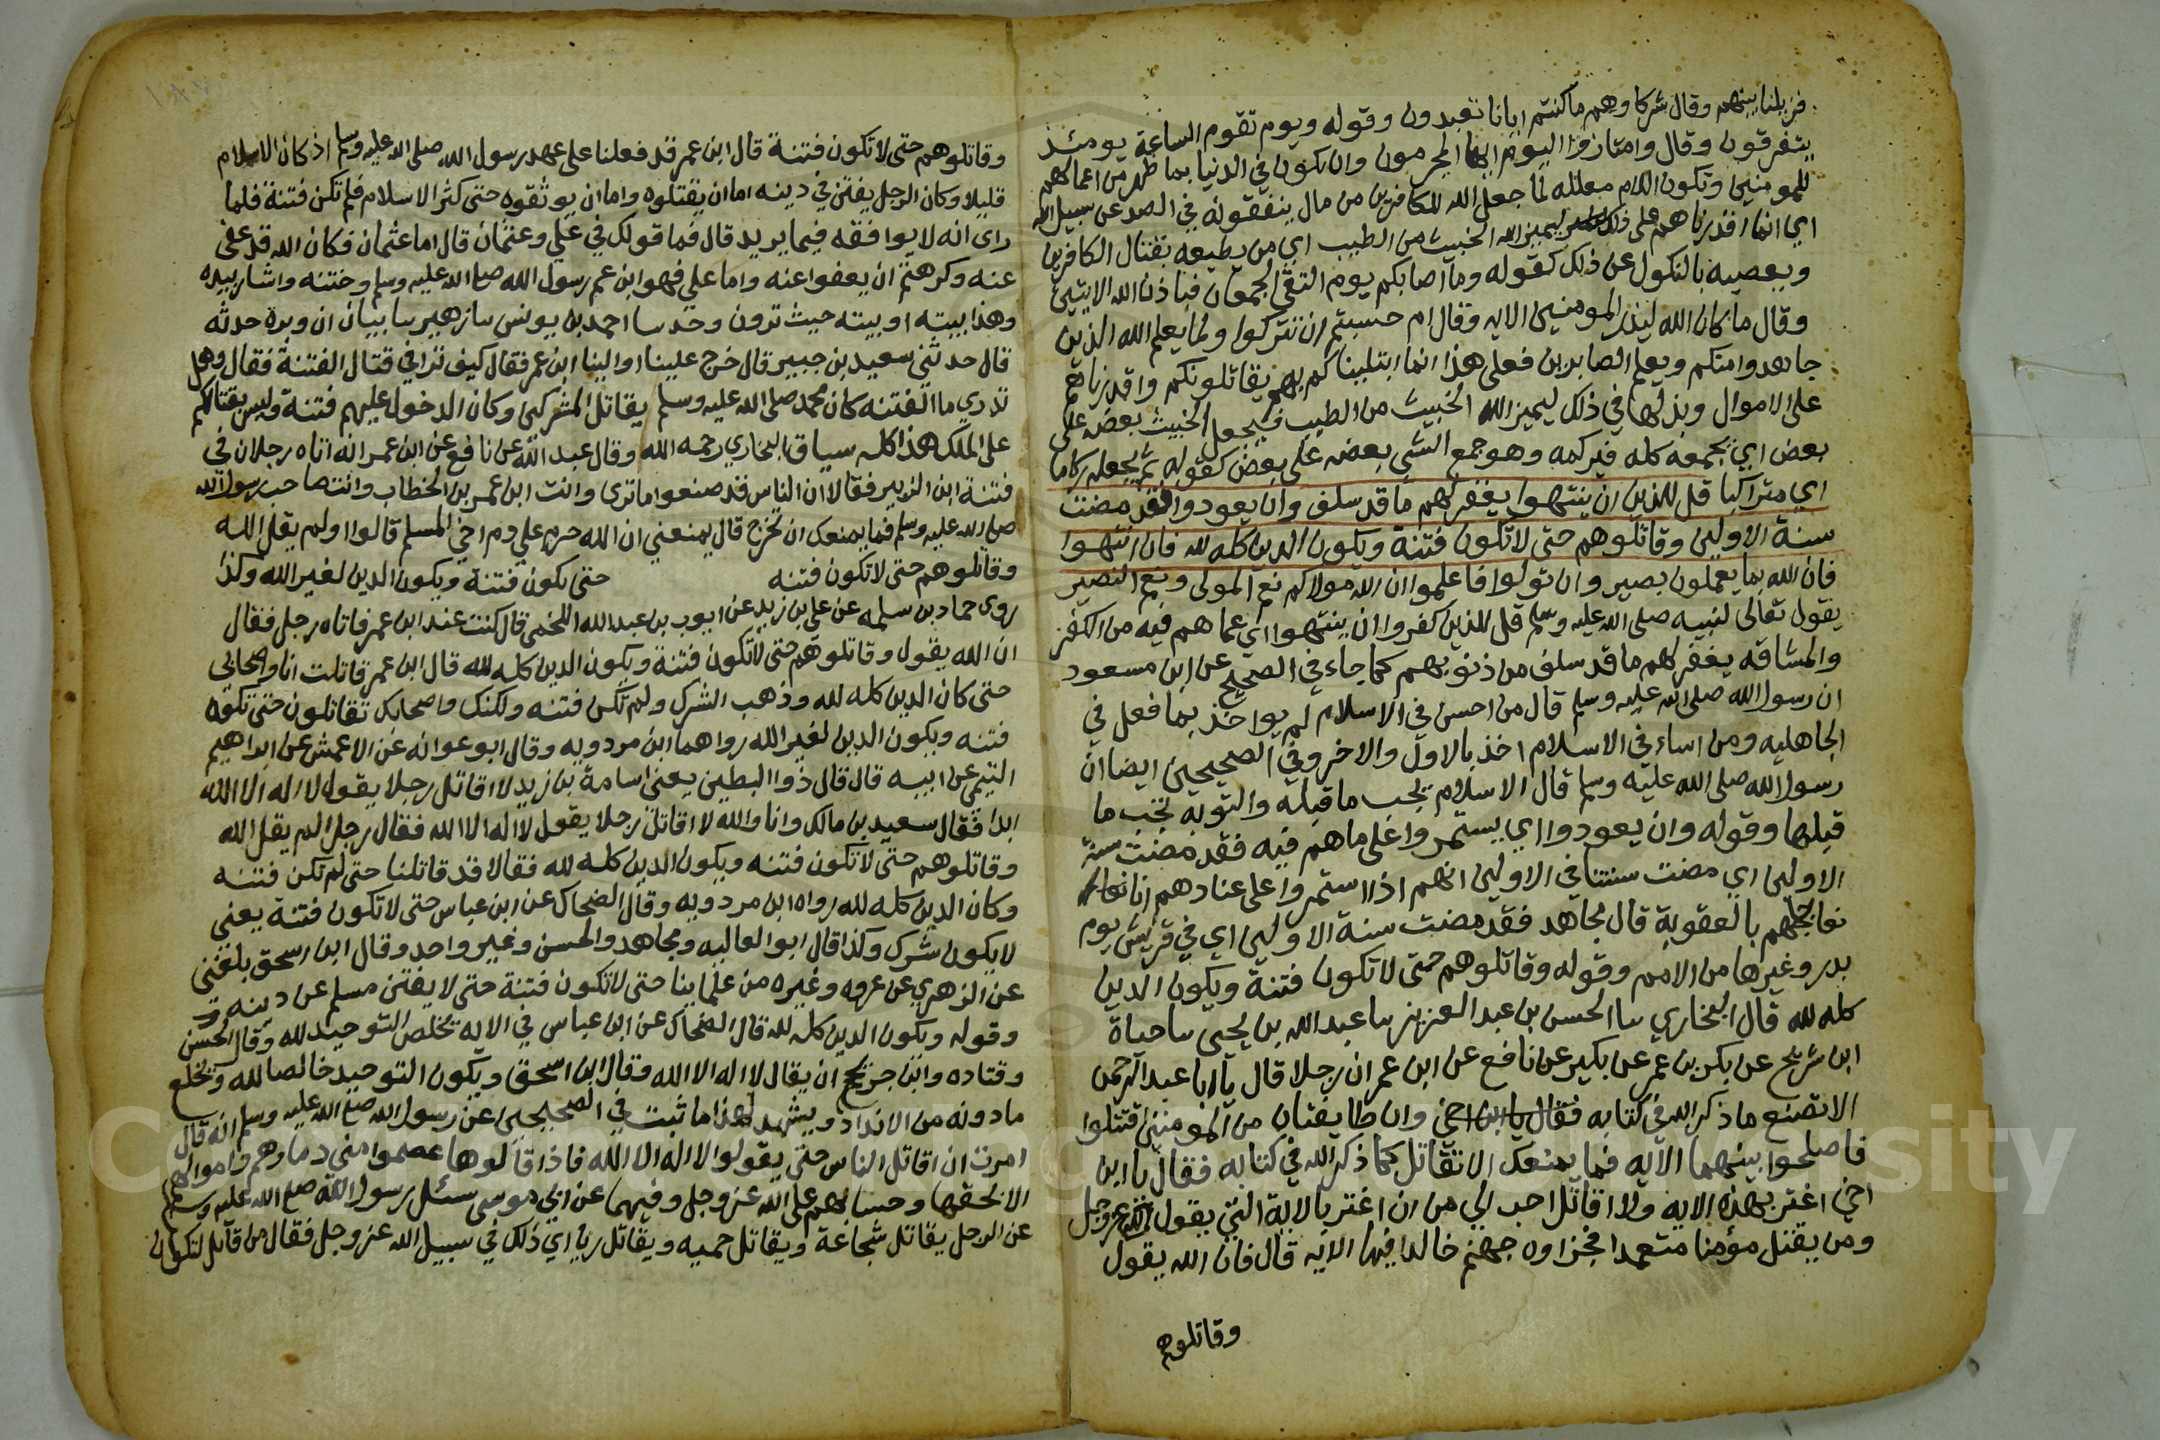 فزيلنا بينهم وقال شركاوهم ما كنتم ايانا تعبدون وقوله ويوم تقوم الساعة يومئذ
يتفرقون وقال وامتازوا اليوم ايها المجرمون وان يكون في الدنيا بما ظهر من اعمالهم
للمومنين وتكون اللام معلله لما جعل الله للكافرين من مال ينفقونه في الصد عن سبيل الله
اي انما اقدرناهم على ذلك ليميز الله الخبيث من الطيب اي من يطيعه بقتال الكافرين
ويعصيه بالنكول عن ذلك كقوله وما اصابكم يوم التقى الجمعان فباذن الله الايتين
وقال ما كان الله ليذر المومنين الايه وقال ام حسبتم ان تتركوا ولما يعلم الله الذين
جاهدوا منكم ويعلم الصابرين فعلى هذا انما ابتليناكم بهم يقاتلونكم واقدرناهم
على الاموال وبذلها في ذلك ليميز الله الخبيث من الطيب فيجعل الخبيث بعضه على
بعض اي يجمعه كله فيركمه وهو جمع الشي بعضه على بعض كقوله ثم يجعله ركاما
اي متراكبا قل للذين ان ينتهوا يغفر لهم ما قد سلف وان يعودوا فقد مضت
سنة الاولين وقاتلوهم حتى لا تكون فتنة ويكون الدين كله لله فان انتهوا
فان الله بما يعملون بصير وان تولوا فاعلموا ان الله مولاكم نعم المولى ونعم النصير
يقول تعالى لنبيه صلى الله عليه وسلم قل للذين كفروا ان ينتهوا اي عما هم فيه من الكفر
والمشاقه يغفر لهم ما قد سلف من ذنوبهم كما جاء في الصحيح عن ابن مسعود
ان رسول الله صلى الله عليه وسلم قال من احسن في الاسلام لم يواخذ بما فعل في
الجاهليه ومن اساء في الاسلام اخذ بالاول والاخر وفي الصحيحين ايضا ان
رسول الله صلى الله عليه وسلم قال الاسلام يجب ما قبله والتوبه تجب ما
قبلها وقوله وان يعودوا اي يستمروا على ما هم فيه فقد مضت سنة
الاولين اي مضت سنتنا في الاولين انهم اذا استمروا على عنادهم انا
نعاجلهم بالعقوبة قال مجاهد فقد مضت سنة الاولين اي في قريش يوم
بدر وغيرها من الامم وقوله وقاتلوهم حتى لا تكون فتنة ويكون الدين
كله لله قال البخاري سا الحسن بن عبد العزيز سا عبد الله بن يحيى سا حياة
ابن شريح عن بكر بن عمر عن بكير عن نافع عن ابن عمر ان رجلا قال يا ابا عبد الرحمن
الا تصنع ما ذكر الله في كتابه فقال يا ابن اخي وان طايفتان من المومنين اقتتلوا
فاصلحوا بينهما الآيه فما يمنعك الا تقاتل كما ذكر الله في كتابه فقال يا ابن
اخي اغتر بهذه الايه ولا اقاتل احب الي من ان اغتر بالاية التي يقول الله عز وجل
ومن يقتل مؤمنا متعمدا فجزاوه جهنم خالدا فيها الايه قال فان الله يقول
وقاتلوهم
وقاتلوهم حتى لا تكون فتنة قال ابن عمر قد فعلنا على عهد رسول الله صلى الله عليه وسلم اذ كان الاسلام
قليلا وكان الرجل يفتن في دينه اما ان يقتلوه واما ان يوثقوه حتى كثر الاسلام فلم تكن فتنة فلما
راى انه لا يوافقه فيما يريد قال فما قولك في علي وعثمان قال اما عثمان فكان الله قد عفى
عنه وكرهتم ان يعفوا عنه واما علي فهو ابن عم رسول الله صلى الله عليه وسلم وختنه واشار بيده
وهذا بيته او بيته حيث ترون وحدسا احمد بن يونس سا زهير سا بيان ان وبرة حدثه
قال حدثني سعيد بن جبير قال خرج علينا او الينا ابن عمر فقال كيف ترا في قتال الفتنة فقال وهل
تدري ما الفتنه كان محمد صلى الله عليه وسلم يقاتل المشركين وكان الدخول عليهم فتنة وليس بقتالكم
على الملك هذا كله سياق البخاري رحمه الله وقال عبد الله عن نافع عن ابن عمر انه اتاه رجلان في
فتنة ابن الزبير فقالا ان الناس قد صنعوا ما ترى وانت ابن عمر بن الخطاب وانت صاحب رسول الله
صلى الله عليه وسلم فما يمنعك ان تخرج قال يمنعني ان الله حرم علي دم اخي المسلم قالوا اولم يقل الله
وقاتلوهم حتى لا تكون فتنه حتى تكون فتنة ويكون الدين لغير الله وكذا
روى حماد بن سلمه عن علي بن زيد عن ايوب بن عبد الله اللخمي قال كنت عند ابن عمر فاتاه رجل فقال
ان الله يقول وقاتلوهم حتى لا تكون فتنة ويكون الدين كله لله قال ابن عمر قاتلت انا واصحابي
حتى كان الدين كله لله وذهب الشرك ولم تكن فتنه ولكنك واصحابك تقاتلون حتى تكون
فتنه ويكون الدين لغير الله رواهما ابن مردويه وقال ابو عوانه عن الاعمش عن ابراهيم
التيمي عن ابيه قال قال ذوا البطين يعني اسامة بن زيد لا اقاتل رجلا يقول لا اله الا الله
ابدا فقال سعيد بن مالك وانا والله لا اقاتل رجلا يقول لا اله الا الله فقال رجل الم يقل الله
وقاتلوهم حتى لا تكون فتنه ويكون الدين كله لله فقالا قد قاتلنا حتى لم تكن فتنه
وكان الدين كله لله رواه ابن مردويه وقال الضحاك عن ابن عباس حتى لا تكون فتنة يعني
لا يكون شرك وكذا قال ابو العاليه ومجاهد والحسن وغير واحد وقال ابن اسحق بلغني
عن الزهري عن عروه وغيره من علماينا حتى لا تكون فتنة حتى لا يفتن مسلم عن دينه
وقوله ويكون الدين كله لله قال الضحاك عن ابن عباس في الايه يخلص التوحيد لله وقال الحسن
وقتاده وابن جريج ان يقال لا اله الا الله وقال ابن اسحق ويكون التوحيد خالصا لله ويخلع
ما دونه من الانداد ويشهد لهذا ما ثبت في الصحيحين عن رسول الله صلى الله عليه وسلم انه قال
امرت ان اقاتل الناس حتى يقولوا لا اله الا الله فاذا قالوها عصموا مني دماوهم واموالهم
الا بحقها وحسابهم على الله عز وجل وفيهما عن ابي موسى سئل رسول الله صلى الله عليه وسلم
عن الرجل يقاتل شجاعة ويقاتل حميه ويقاتل ريا اي ذلك في سبيل الله عز وجل فقال من قاتل لتكون